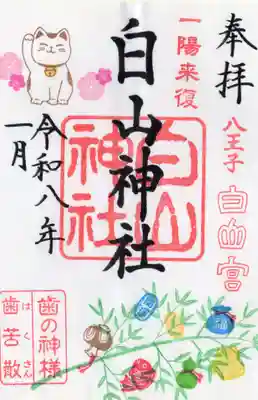 奉拝
八王子 白山宮
一陽来復
白山神社
白山神社
令和八年
一月
歯の神様
歯苦散
はくさん